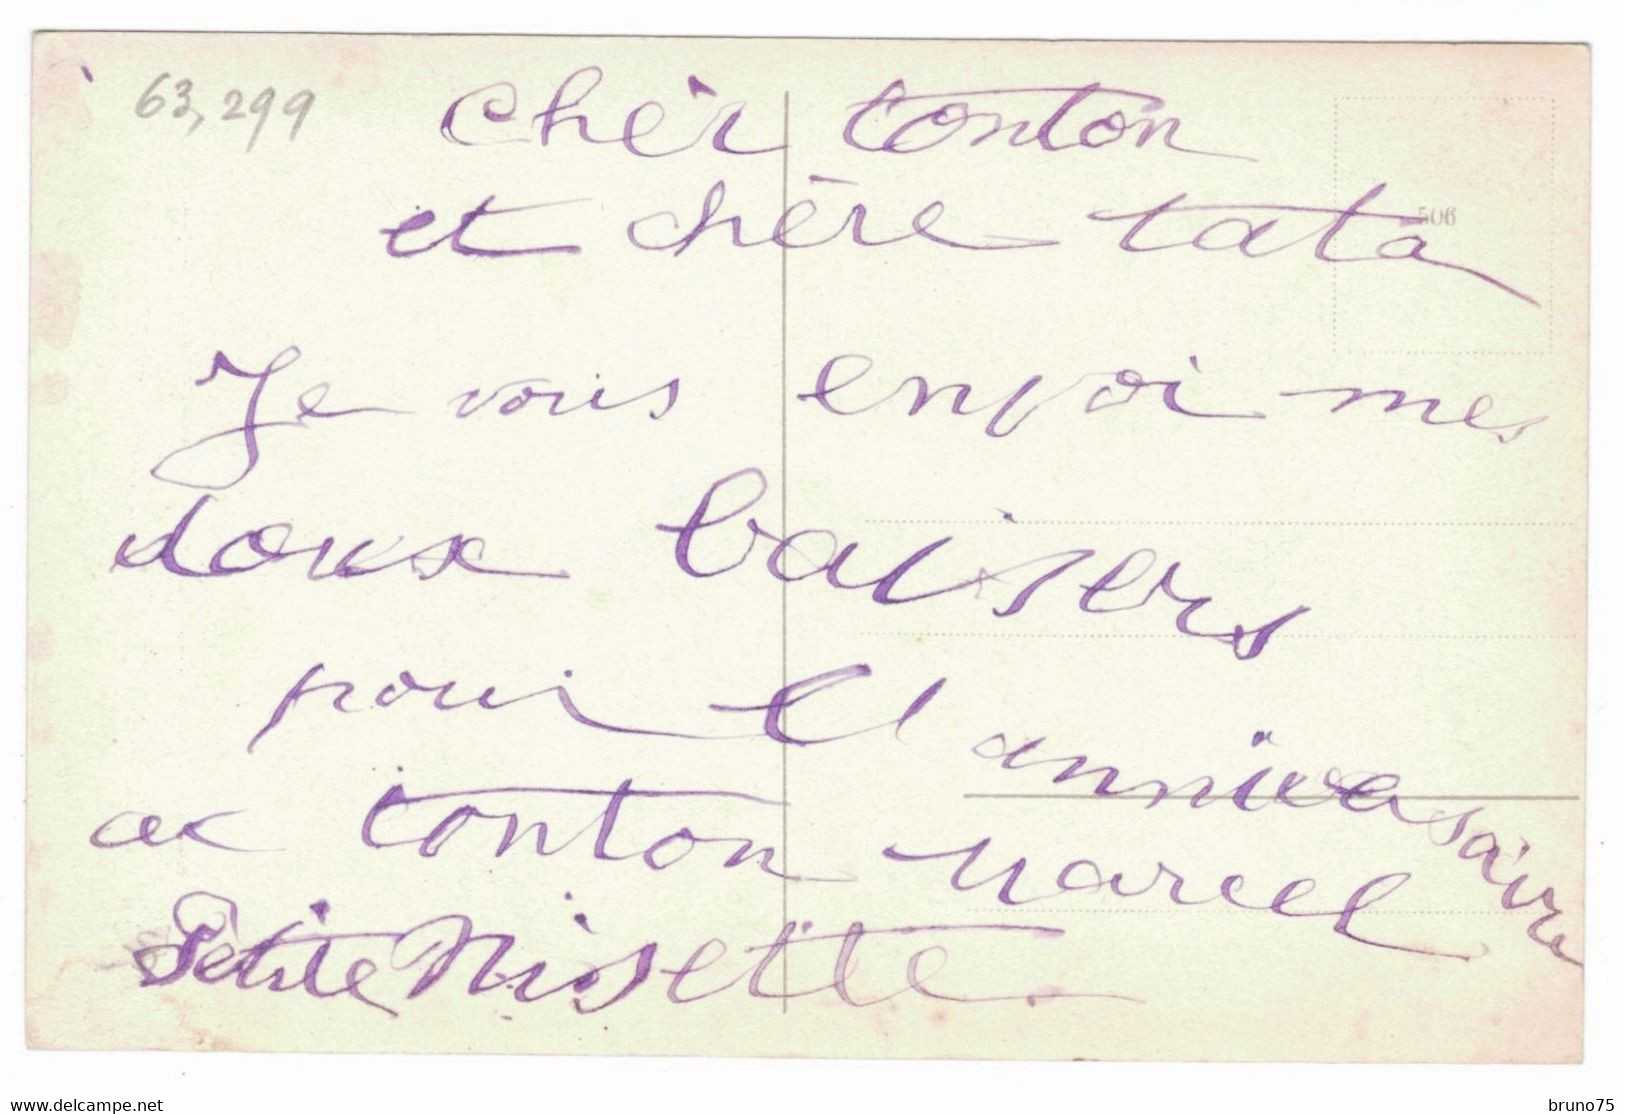 63,299
Chèr tonton
506
et chère tata
Je vous envoi mes
doux baisers
pour l anniversaire
a tonton Marcel
Petite Nisette
www.delcampe.net
bruno75